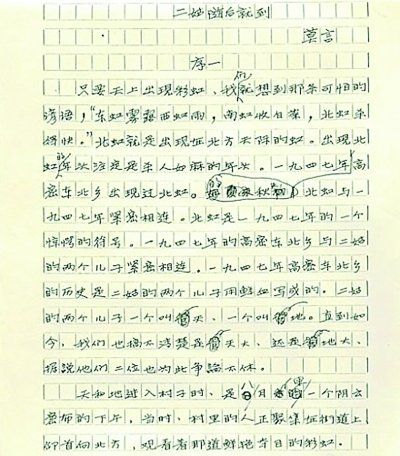 二姑随后就到
莫言
序一
只要天上出现彩虹,我们就想到那条可怕的
谚语:“东虹雾露西虹雨,南虹收白菜,北虹杀
得快。”北虹就是出现在北方天际的虹。出现北
虹的年头注定是杀人如麻的年头。一九四七年高
密东北乡出现过北虹。北虹与一
九四七年紧密相连。北虹是一九四七年的一个
惊愕的符号。一九四七年的高密东北乡与二姑
的两个儿子紧密相连。一九四七年高密东北乡
的历史是二姑的两个儿子用鲜血写成的。二姑
的两个儿子一个叫天,一个叫地。直到如
今,我们也搞不清楚是天大,还是地大,
据说他们二位也为此争论不休。
天和地进入村子时,是八月里一个阴云
密布的下午,当时,村里的人正聚集在街道上
都首向北方,观看着那道鲜艳夺目的彩虹。